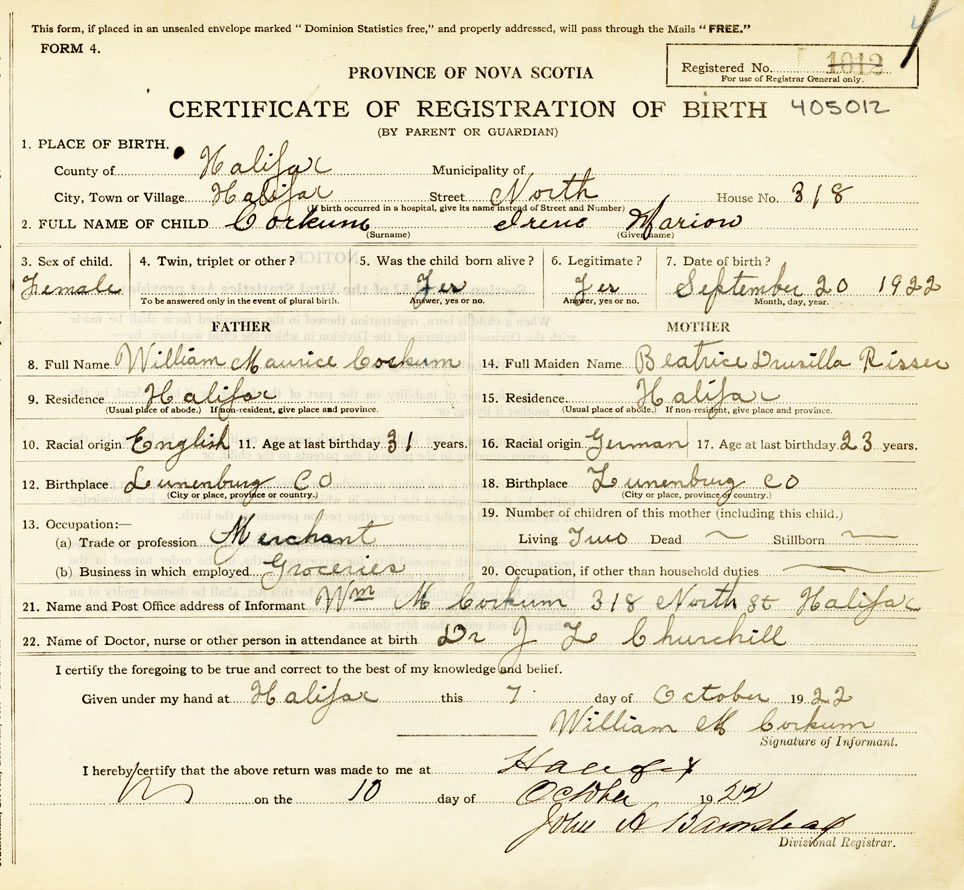 This form, if placed in an unsealed envelope marked "Dominion Statistics free," and properly addressed, will pass through the Mails "FREE."
FORM 4.
Registered No. 1012
For use of Registrar General only.
PROVINCE OF NOVA SCOTIA
CERTIFICATE OF REGISTRATION OF BIRTH 405012
(BY PARENT OR GUARDIAN)
1. PLACE OF BIRTH.
County of Halifax Municipality of
City, Town or Village Halifax Street North House No. 318
(If birth occurred in a hospital, give its name instead of Street and Number)
2. FULL NAME OF CHILD Corkum Irene Marion
(Surname) (Given name)
3. Sex of child. 4. Twin, triplet or other? 5. Was the child born alive? 6. Legitimate? 7. Date of birth?
Female Yes Yes September 20 1922
To be answered only in the event of plural birth. Answer, yes or no. Answer, yes or no. Month, day, year.
FATHER
8. Full Name William Maurice Corkum
9. Residence Halifax
(Usual place of abode.) If non-resident, give place and province.
10. Racial origin English 11. Age at last birthday 31 years.
12. Birthplace Lunenburg CO
(City or place, province or country.)
13. Occupation:—
(a) Trade or profession Merchant
(b) Business in which employed Groceries
MOTHER
14. Full Maiden Name Beatrice Drusilla Risser
15. Residence Halifax
(Usual place of abode.) If non-resident, give place and province.
16. Racial origin German 17. Age at last birthday 23 years.
18. Birthplace Lunenburg CO
(City or place, province or country.)
19. Number of children of this mother (including this child.)
Living Two Dead ~ Stillborn ~
20. Occupation, if other than household duties
21. Name and Post Office address of Informant Wm M Corkum 318 North St Halifax
22. Name of Doctor, nurse or other person in attendance at birth Dr J L Churchill
I certify the foregoing to be true and correct to the best of my knowledge and belief.
Given under my hand at Halifax this 7 day of October 1922
William M Corkum
Signature of Informant.
I hereby certify that the above return was made to me at Halifax
on the 10 day of October 1922
John A
Divisional Registrar.